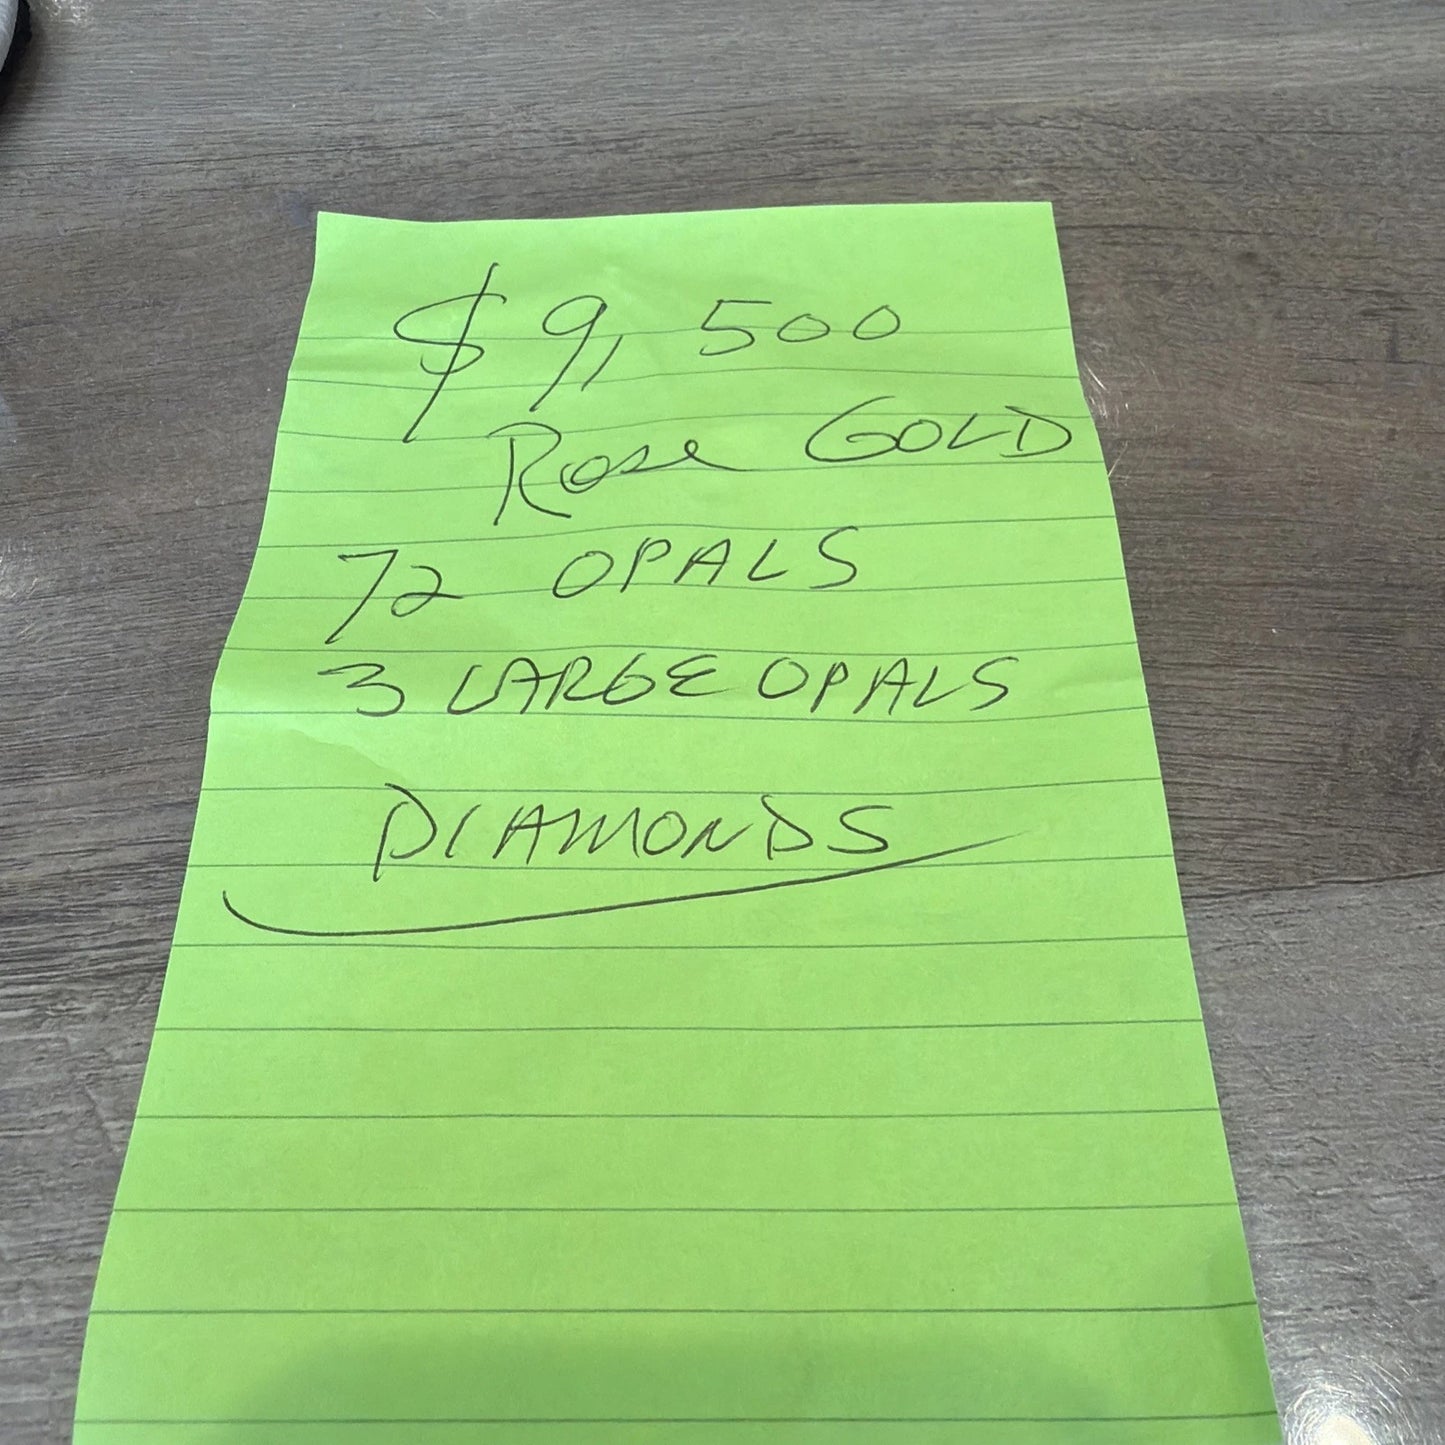 $9,500
Rose GOLD
72 OPALS
3 LARGE OPALS
DIAMONDS